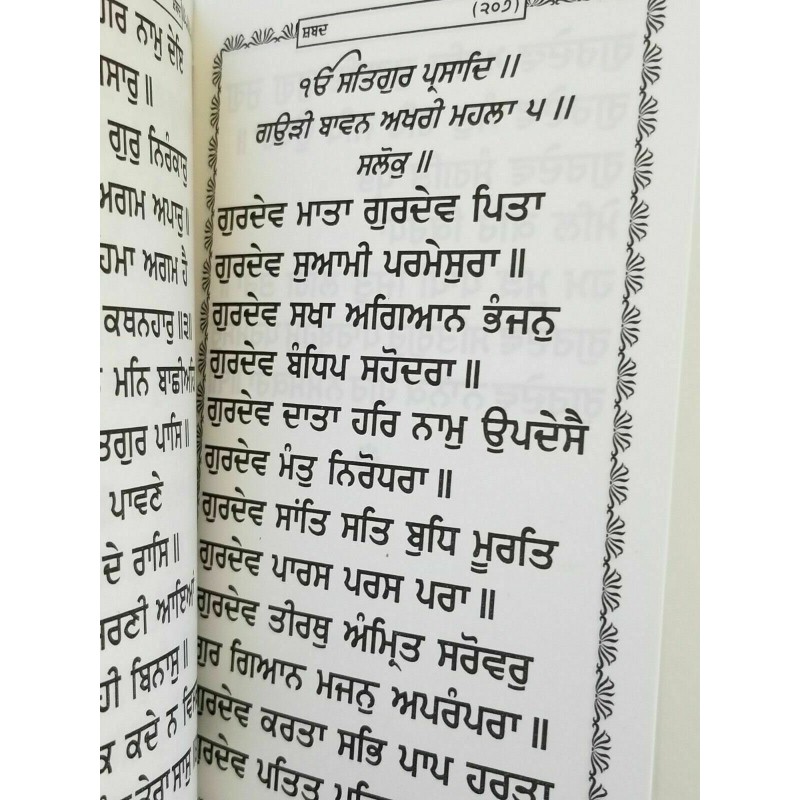 ਹਰਿ ਨਾਮੁ ਦੇਇ
ਗੁਰੁ ਨਿਰੰਕਾਰੁ
ਅਗਮ ਅਪਾਰੁ॥
ਅਗਮ ਹੈ
ਕਥਨਹਾਰੁ॥੩॥
ਮਨਿ ਬਾਛੀਅਹਿ
ਪਾਸਿ॥
ਪਾਵਣੇ
ਦੇ ਰਾਸਿ॥
ਬਿਨਾਸੁ॥
ਕਦੇ ਨ
ਸ਼ਬਦ
(੨੦੭)
ੴ ਸਤਿਗੁਰ ਪ੍ਰਸਾਦਿ॥
ਗਉੜੀ ਬਾਵਨ ਅਖਰੀ ਮਹਲਾ ੫॥
ਸਲੋਕੁ॥
ਗੁਰਦੇਵ ਮਾਤਾ ਗੁਰਦੇਵ ਪਿਤਾ
ਗੁਰਦੇਵ ਸੁਆਮੀ ਪਰਮੇਸੁਰਾ॥
ਗੁਰਦੇਵ ਸਖਾ ਅਗਿਆਨ ਭੰਜਨੁ
ਗੁਰਦੇਵ ਬੰਧਿਪ ਸਹੋਦਰਾ॥
ਗੁਰਦੇਵ ਦਾਤਾ ਹਰਿ ਨਾਮੁ ਉਪਦੇਸੈ
ਗੁਰਦੇਵ ਮੰਤੁ ਨਿਰੋਧਰਾ॥
ਗੁਰਦੇਵ ਸਾਂਤਿ ਸਤਿ ਬੁਧਿ ਮੂਰਤਿ
ਗੁਰਦੇਵ ਪਾਰਸ ਪਰਸ ਪਰਾ॥
ਗੁਰਦੇਵ ਤੀਰਥੁ ਅੰਮ੍ਰਿਤ ਸਰੋਵਰੁ
ਗੁਰ ਗਿਆਨ ਮਜਨੁ ਅਪਰੰਪਰਾ॥
ਗੁਰਦੇਵ ਕਰਤਾ ਸਭਿ ਪਾਪ ਹਰਤਾ
ਗੁਰਦੇਵ ਪਤਿਤ